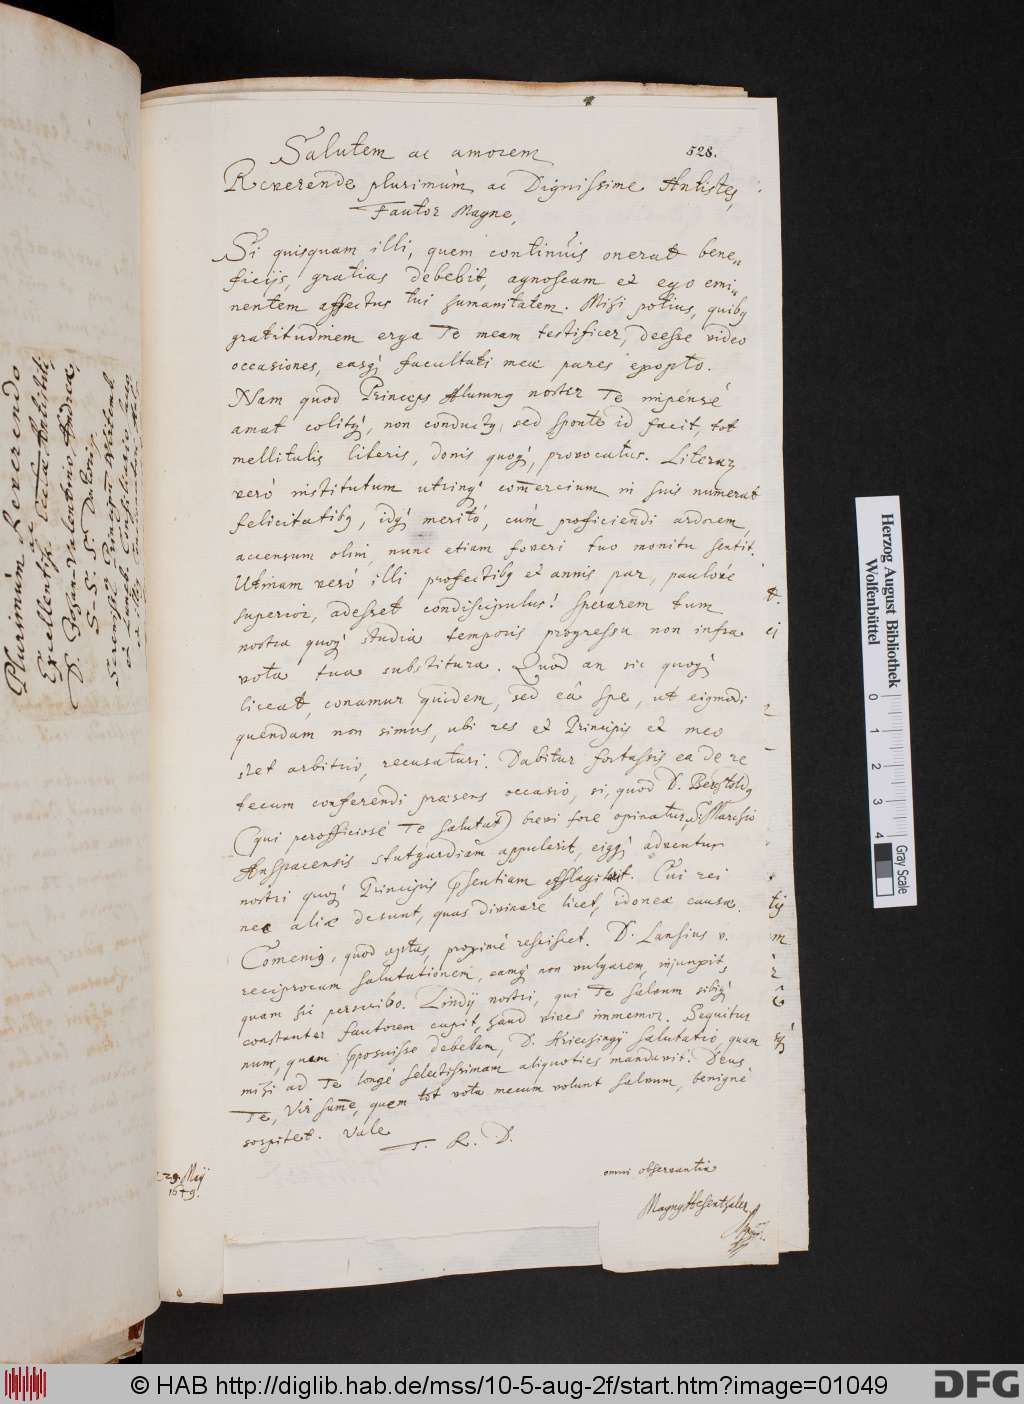 528.
Salutem ac amorem
Reverende plurimùm ac Dignissime Antistes,
Fautor Magne,
Si quisquam illi, quem continuis onerat bene„
ficijs, gratias debebit, agnoscam et ego emi„
nentem affectus tui humanitatem. Mihi potius, quibq
gratitudinem erga Te meam testificer, deesse video
occasiones, easq́ facultati meæ pares exopto.
Nam quod Princeps Alumnq noster Te impensè
amat colitq́, non conductq, sed sponte id facit, tot
mellitulis literis, donis quoq́, provocatus. Literar
verò institutum utrinq́ com̄ercium in suis numerat
felicitatibq, idq́ meritò, cùm proficiendi ardorem,
accensum olim, nunc etiam foveri tuo monitu sentit.
Utinam verò illi profectibq et annis par, paulove
superior, adesset condiscipulus! Sperarem tum
nostra quoq́ studia temporis progressu non infra
vota tua substitura. Quod an sic quoq́
liceat, conamur quidem, sed eâ spe, ut eiqmodi
quendam non simus, ubi res et Principis et meo
stet arbitrio, recusaturi. Dabitur fortassis ea de re
tecum conferendi præsens occasio, si, quod D.
(qui perofficiosè Te salutat) brevi fore opinatur, Marchio
Anspacensis Stutgardiam appulerit, eiqq́ adventus
nostri quoq́ Principis p̄sentiam efflagitet. Cui rei
nec aliæ desunt, quas divinare licet, idoneæ causæ.
Comeniq, quod optas, proximè resciscet. D. Lansius v.
reciprocam salutationem, eamq́ non vulgarem, injunxit,
quam hic perscribo. Lindij nostri, qui Te salvum sibiq́
constanter fautorem cupit, haud vives immemor. Sequitur
nunc, quam p̄posuisse debebam, D. salutatio, quam
mihi ad Te longè selectissimam aliquoties mandavit. Deus
Te, Vir sum̄e, quem tot vota mecum volunt salvum, benignè
sospitet. Vale
T. R. D.
29. Maij
1649.
omni observantia
Magnq Hesenthaler
Plurimùm Reverendo
ac
Excellentiss. Antistiti,
D. Johan-Valentino Andreæ,
S. S. Th. Doctori,
Herzog August Bibliothek
Wolfenbüttel
0 1 2 3 4
Gray Scale
© HAB http://diglib.hab.de/mss/10-5-aug-2f/start.htm?image=01049
DFG